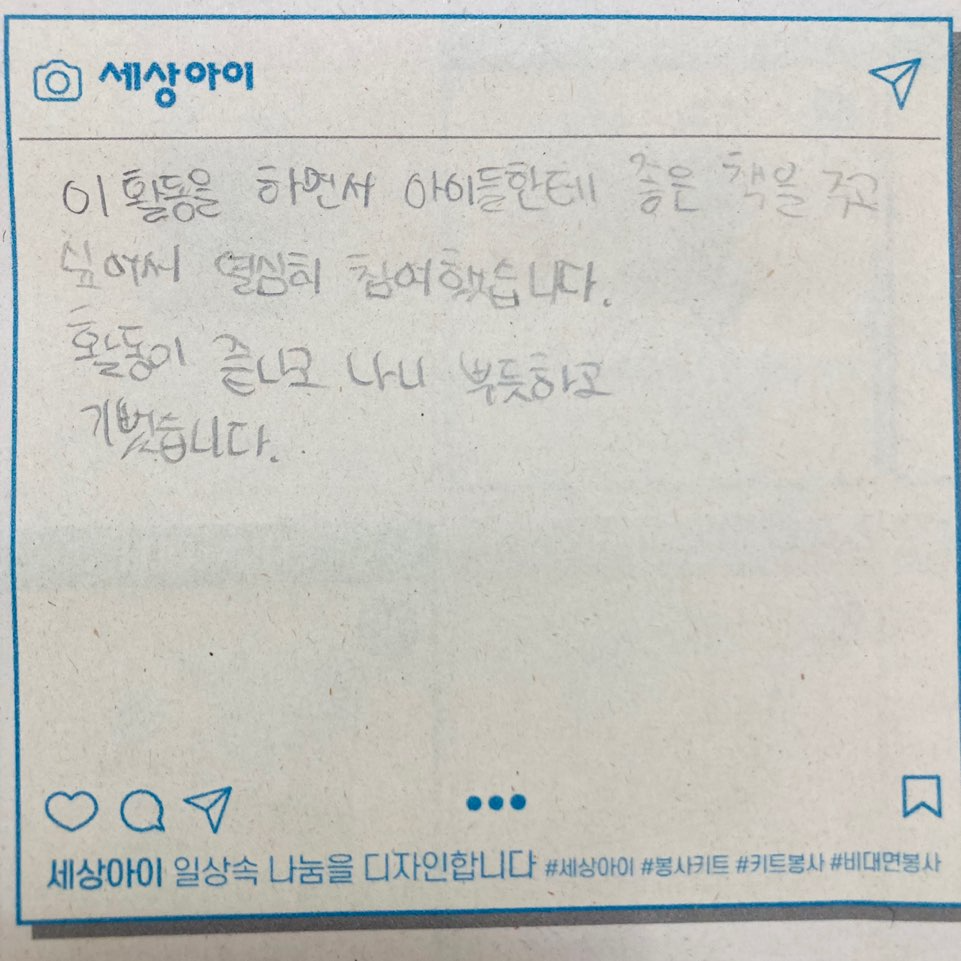 세상아이
이 활동을 하면서 아이들한테 좋은 책을 주고
싶어써 열심히 참여했습니다.
활동이 끝나고 나니 뿌듯하고
기뻤습니다.
세상아이 일상속 나눔을 디자인합니다 #세상아이 #봉사키트 #키트봉사 #비대면봉사